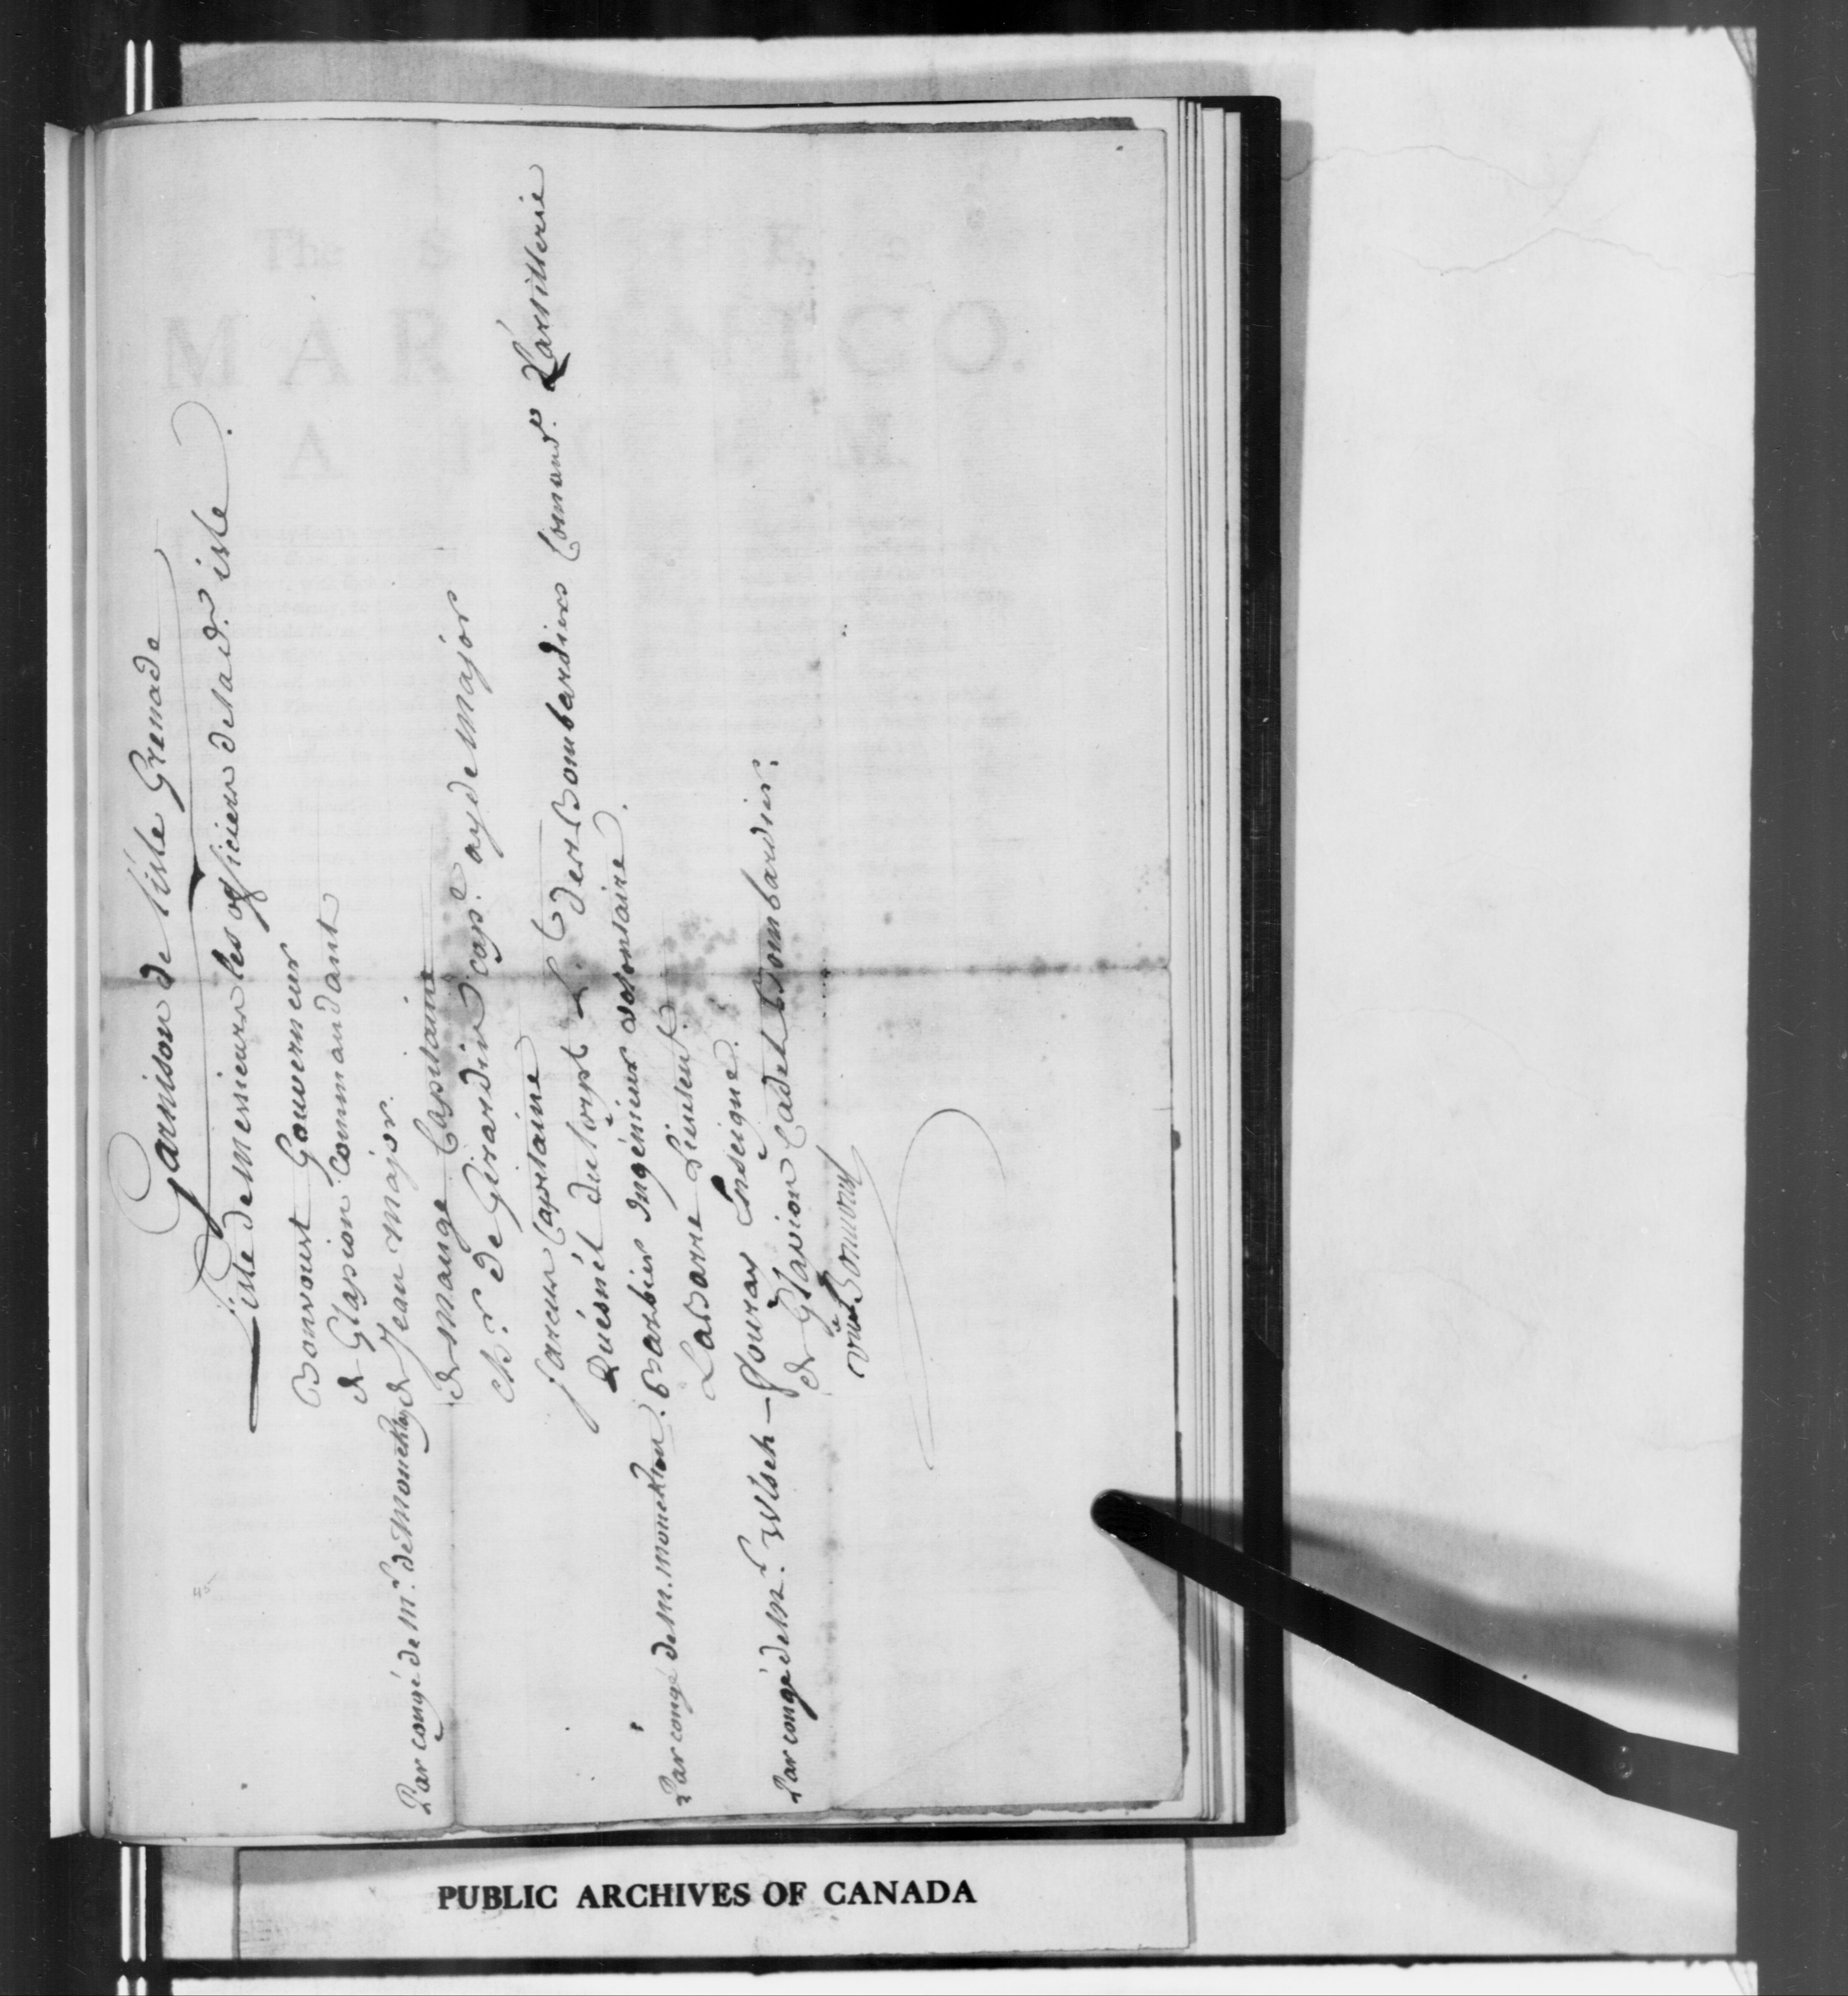 Garnison de L'isle Grenade
Liste de Messieurs les officiers de lad.e isle
Bonvoust Gouverneur
de Glapion Commandant
Par congé de Mr. de Monckton de Jean Major.
de Mange Capitaine
chr. de Girardin cap.e ayde Major
fareur Capitaine
Quésnél du torpt L. C des Bombardiers Command.t L'artillerie
Par congé de M. Monckton. Barbier Ingénieur volontaire.
LaBorre Lieuten.t
Par congé de Mr. Wlsch — flouray Enseigne.
de Glapion Cadet Bombardier.
vû Bonvoust
The MAR N I C O.
A
PUBLIC ARCHIVES OF CANADA